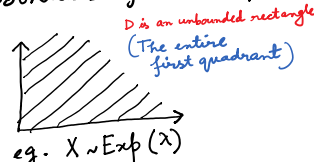 D is an unbounded rectangle
(The entire
first quadrant)
eg. X ~ Exp(λ)